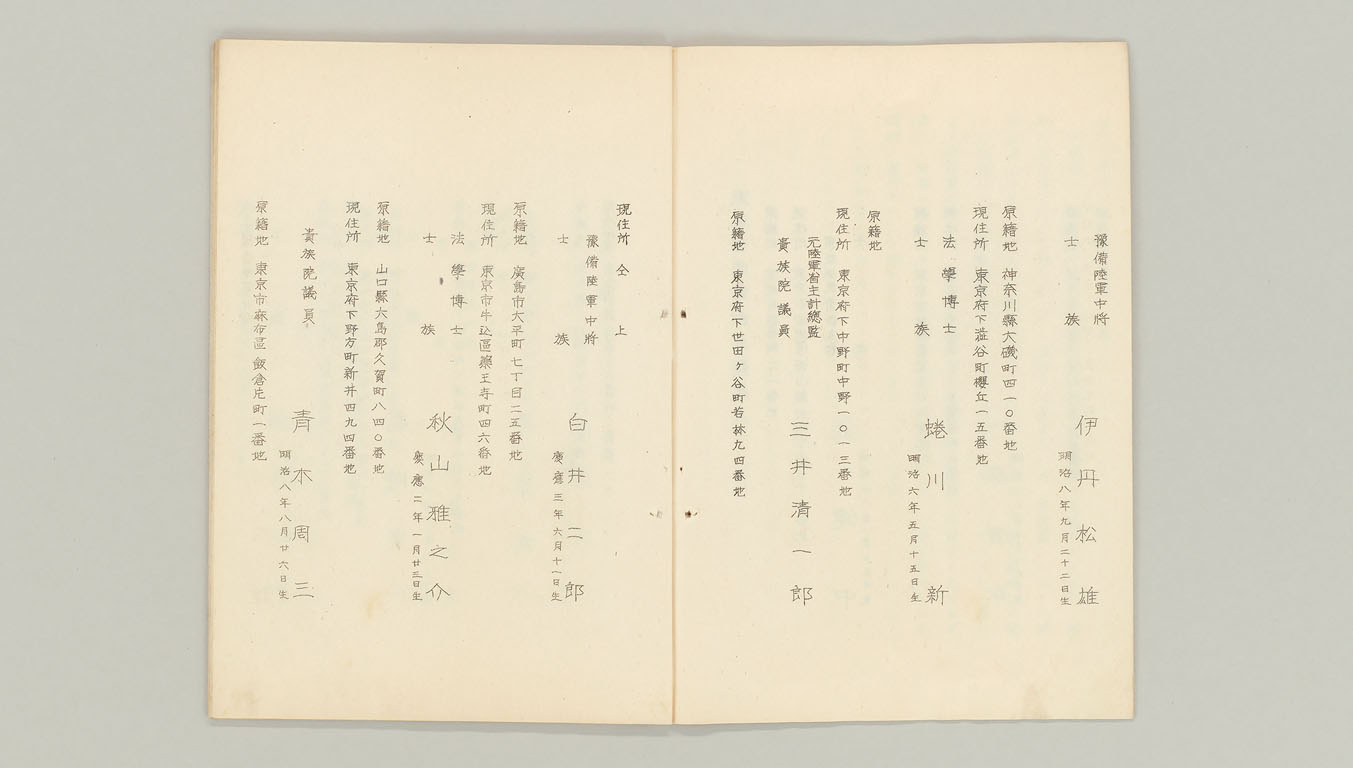 豫備陸軍中將
士族
伊丹松雄
明治八年九月二十二日生
原籍地 神奈川縣大磯町四一〇番地
現住所 東京府下澁谷町櫻丘一五番地
法學博士
士族
蜷川新
明治六年五月十五日生
原籍地
現住所 東京府下中野町中野一〇一三番地
元陸軍省主計總監
貴族院議員
三井清一郎
原籍地 東京府下世田ヶ谷町若林九四番地
現住所 仝上
豫備陸軍中將
士族
白井二郎
慶應三年六月十一日生
原籍地 廣島市大平町七丁目二五番地
現住所 東京市牛込區藥王寺町四六番地
法學博士
士族
秋山雅之介
慶應二年一月廿三日生
原籍地 山口縣大島郡久賀町八四〇番地
現住所 東京府下野方町新井四九四番地
貴族院議員
青木周三
明治八年八月廿六日生
原籍地 東京市麻布區飯倉片町一番地